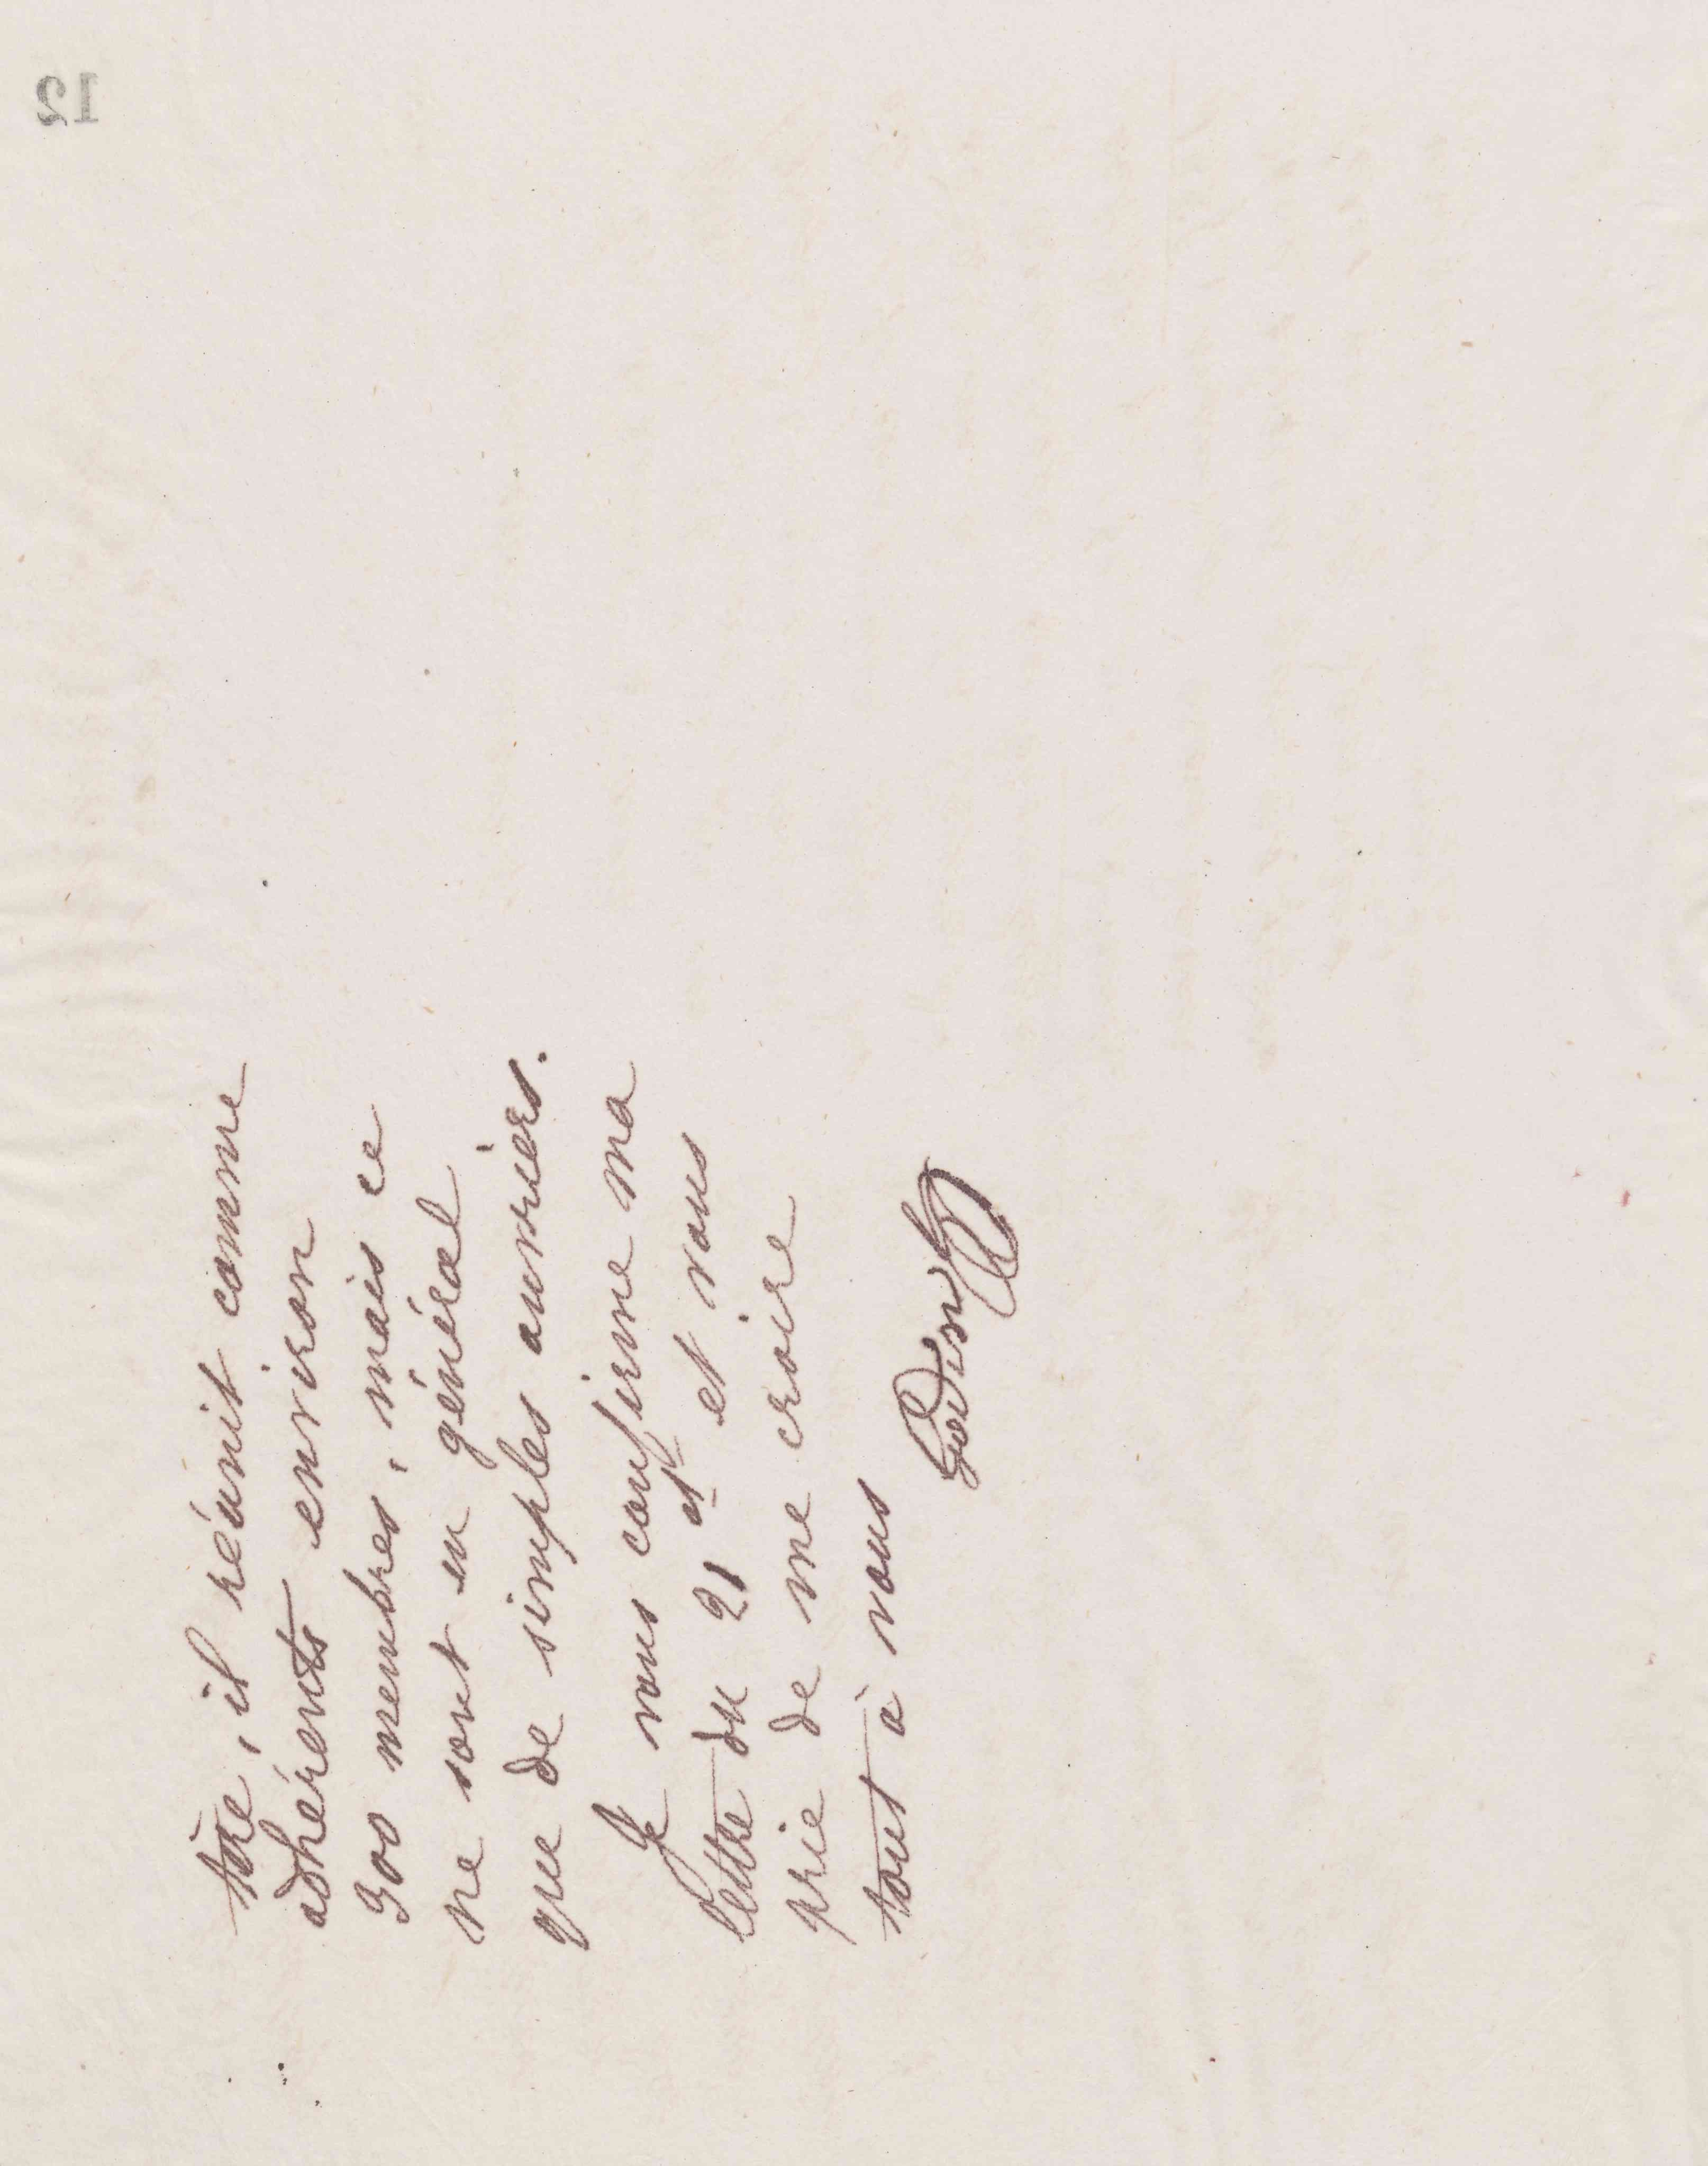 12
tère, il réunit comme
adhérents environ
900 membres, mais ce
ne sont en général
que de simples ouvriers.
Je vous confirme ma
lettre du 21 ct et vous
prie de me croire
tout à vous
Godin